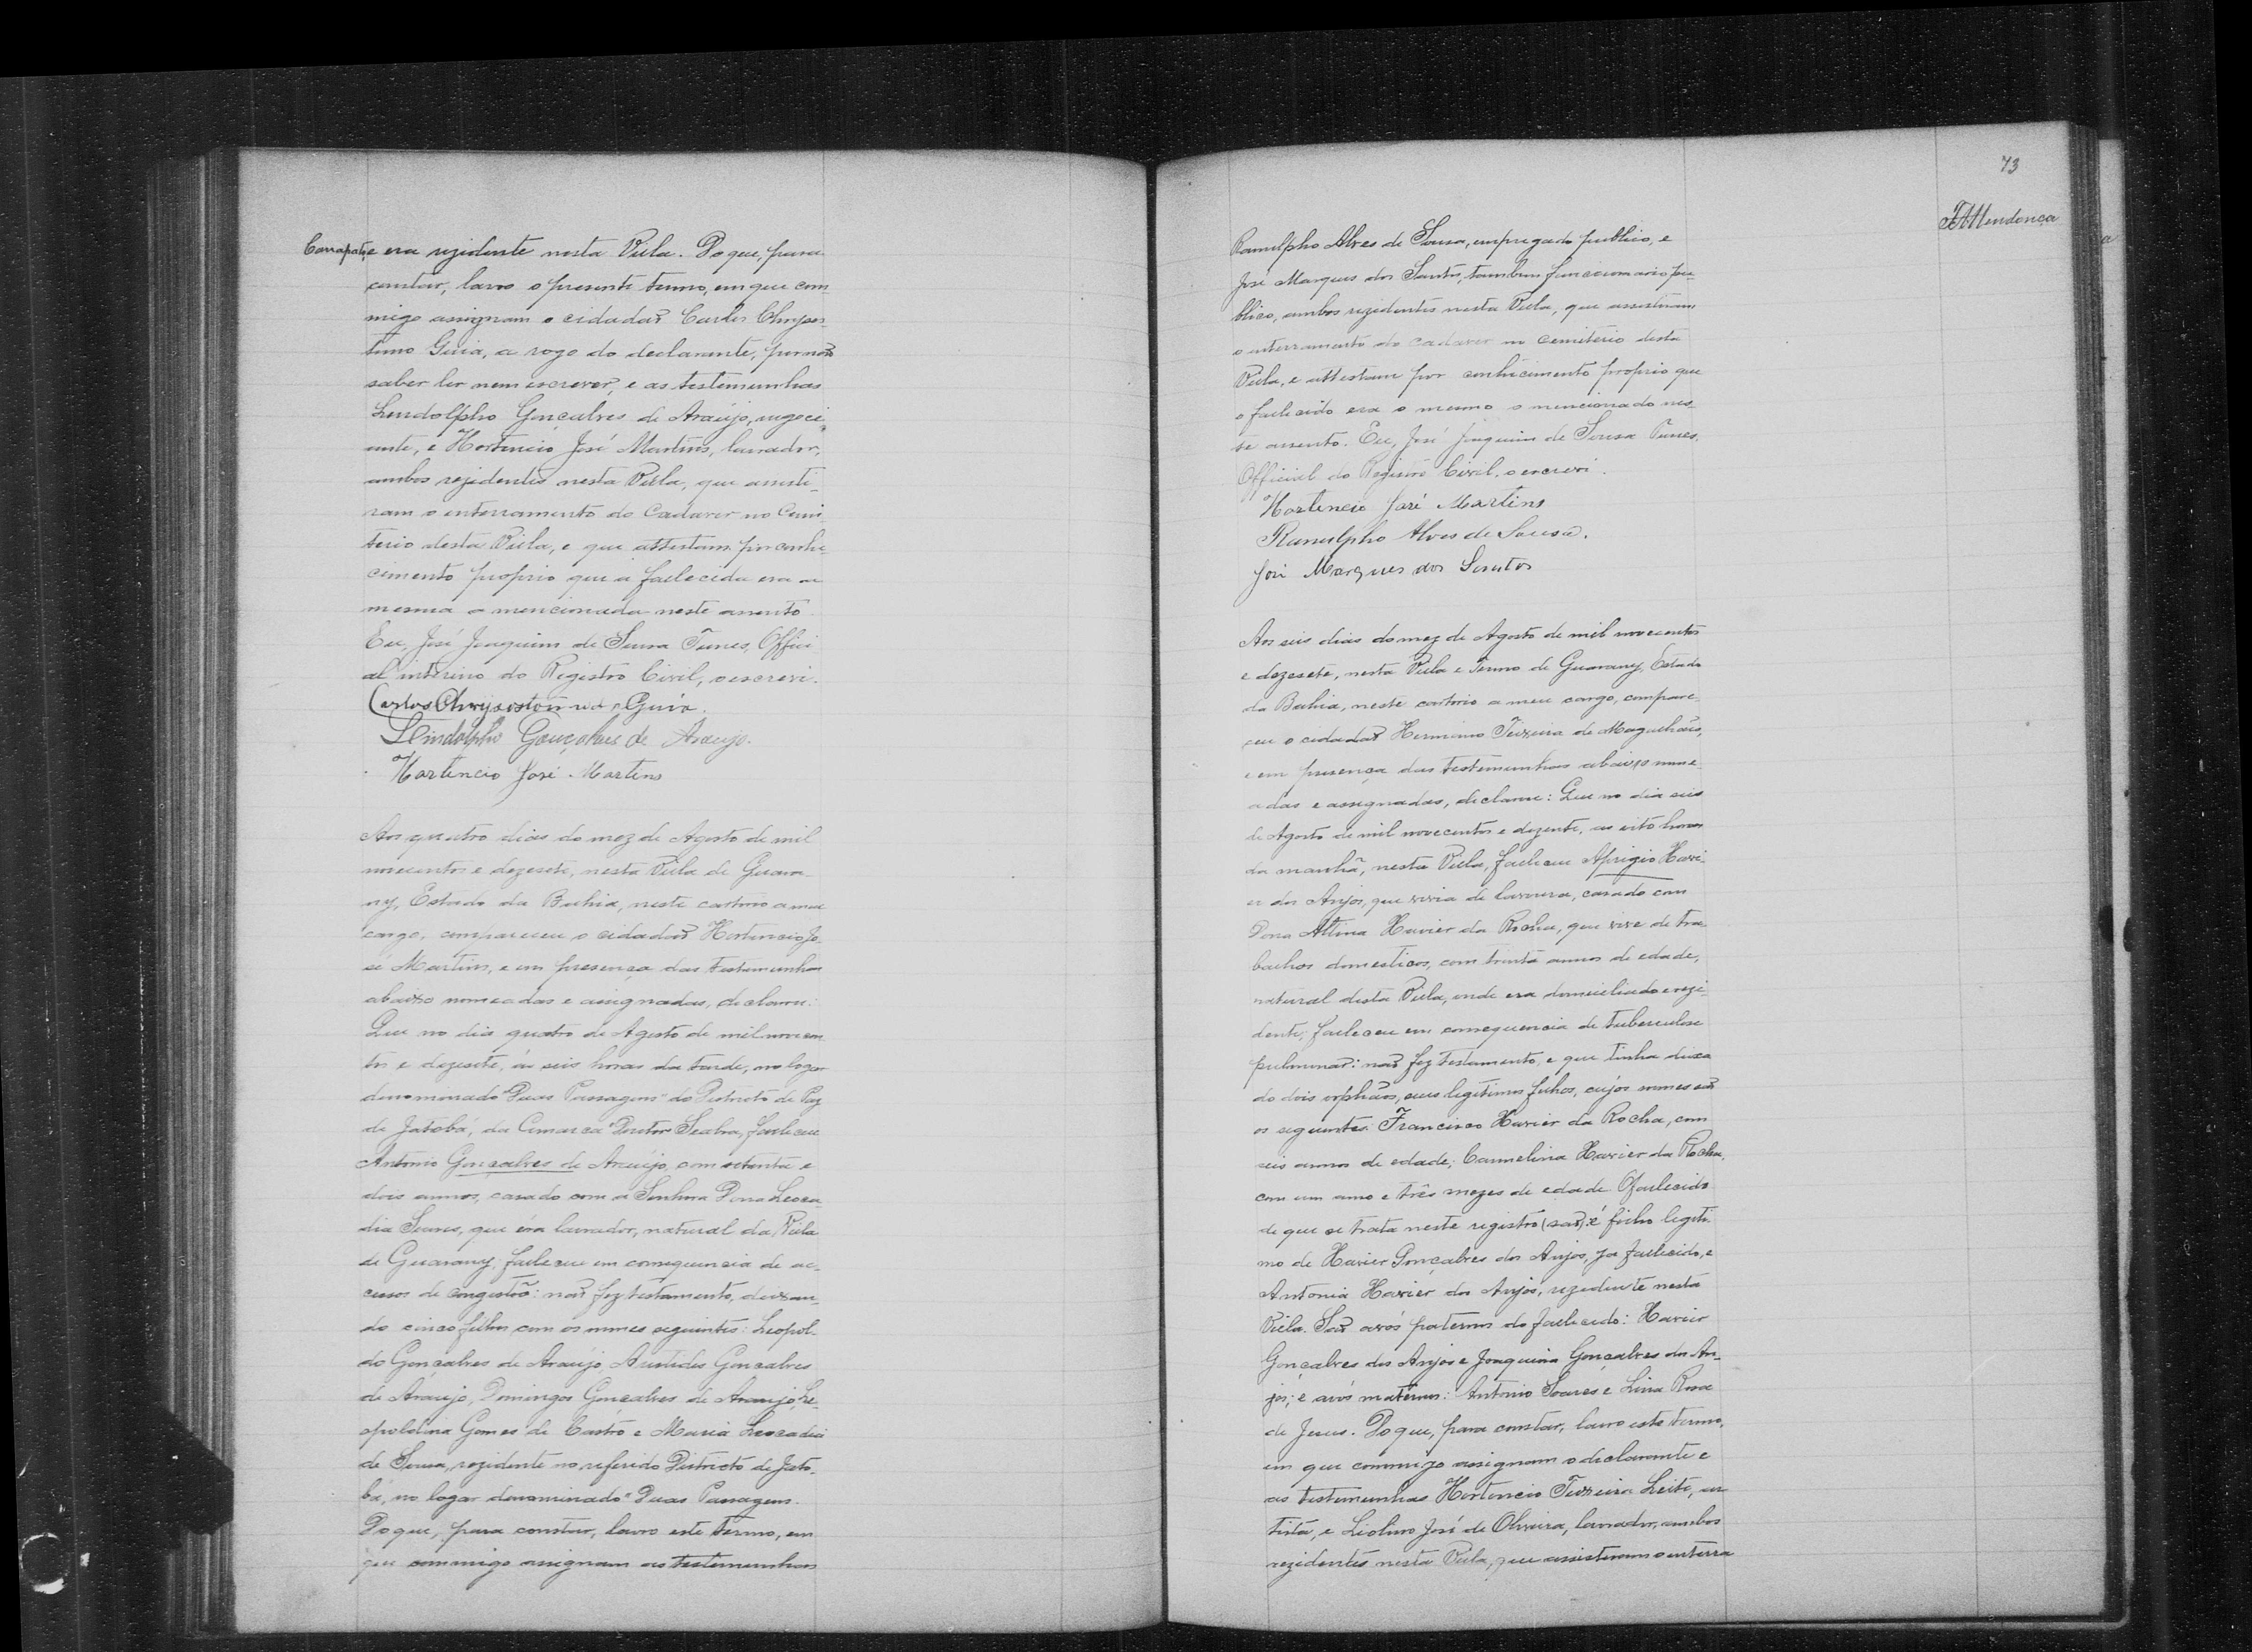 Carrapato, e era rezidente nesta Villa. Do que, para
constar, lavro o presente termo, em que com-
migo assignam o cidadaõ Carlos Chrysos-
tomo Guia, a rogo do declarante, por naõ
saber ler nem escrever, e as testemunhas
Lindolpho Gonçalves de Araújo, negoci-
ante, e Hortencio José Martins, lavrador,
ambos rezidentes nesta Villa, que assisti-
ram o enterramento do Cadaver no Cemi-
terio desta Villa, e que attestam por conhe-
cimento proprio que a fallecida era a
mesma a mencionada neste assento
Eu, José Joaquim de Sousa Tunes, Offici
al interino do Registro Civil, o escrevi.
Carlos Chrysostomo da Guia.
Lindolpho Gonçalves de Araujo.
Hortencio José Martins
Aos quatro dias do mez de Agosto de mil
novecentos e dezesete, nesta Villa de Guara-
ny, Estado da Bahia, neste cartorio a meu
cargo, compareceu o cidadaõ Hortencio Jo-
sé Martins, e em presença das testemunhas
abaixo nomeadas e assignadas, declarou:
Que no dia quatro de Agosto de mil novecen
tos e dezesete, ás seis horas da tarde, no logar
denominado "Duas Passagens" do Districto de Paz
de Jatobá, da Comarca Doutor Seabra, falleceu
Antonio Gonçalves de Araújo, com setenta e
dois annos, casado com a Senhora Dona Leoca-
dia Soares, que éra lavrador, natural da Villa
de Guarany; falleceu em consequencia de ac-
cessos de congestõe: naõ fez testamento, deixan-
do cinco filhos com os nomes seguintes: Leopol-
do Gonçalves de Araújo, Aristides Gonçalves
de Araujo, Domingos Gonçalves de Araujo, Le-
opoldina Gomes de Castro e Maria Leocadia
de Sousa, rezidente no referido Districto de Jato-
bá, no logar denominado "Duas Passagens.
Do que, para constar, lavro este termo, em
que commigo assignam as testemunhas
73
Mendonca
Ranulpho Alves de Sousa, empregado publico, e
José Marques dos Santos, tambem funccionario pu-
blico, ambos rezidentes nesta Villa, que assistiram
o enterramento do cadaver no cemiterio desta
Villa, e attestam por conhecimento proprio que
o fallecido era o mesmo o mencionado nes-
te assento. Eu, José Joaquim de Sousa Tunes,
Official do Registro Civil, o escrevi.
Hortencio José Martins
Ranulpho Alves de Sousa.
José Marques dos Santos
Aos seis dias do mez de Agosto de mil novecentos
e dezesete, nesta Villa e Termo de Guarany, Estado
da Bahia, neste cartorio a meu cargo, compare-
ceu o cidadaõ Herminio Teixeira de Magalhães,
e em presença das testemunhas abaixo nome-
adas e assignadas, declarou: Que no dia seis
de Agosto de mil novecentos e dezesete, as oito horas
da manhã, nesta Villa, falleceu Aprigio Xavi-
er dos Anjos, que vivia de lavoura, casado com
Dona Altina Xavier da Rocha, que vive de tra-
balhos domesticos, com trinta annos de edade,
natural desta Villa, onde era domiciliado e rezi-
dente; falleceu em consequencia de tuberculose
pulmonar: naõ fez testamento, e que tinha deixa
do dois orphãos, seus legitimos filhos, cujos nomes saõ
os seguintes: Francisco Xavier da Rocha, com
seis annos de edade; Carmelina Xavier da Rocha,
com um anno e três mezes de edade. O fallecido
de que se trata neste registro (saõ) é filho legiti-
mo de Xavier Gonçalves dos Anjos, ja fallecido, e
Antonia Xavier dos Anjos, rezidente nesta
Villa. Saõ avós paternos do fallecido: Xavier
Gonçalves dos Anjos e Joaquina Gonçalves dos An-
jos; e avós maternos: Antonio Soares e Lina Rosa
de Jesus. Do que, para constar, lavro este termo,
em que commigo assignam o declarante e
as testemunhas Hortencio Teixeira Leite, ar
tista, e Liolino José de Oliveira, lavrador, ambos
rezidentes nesta Villa, que assisteram o enterra